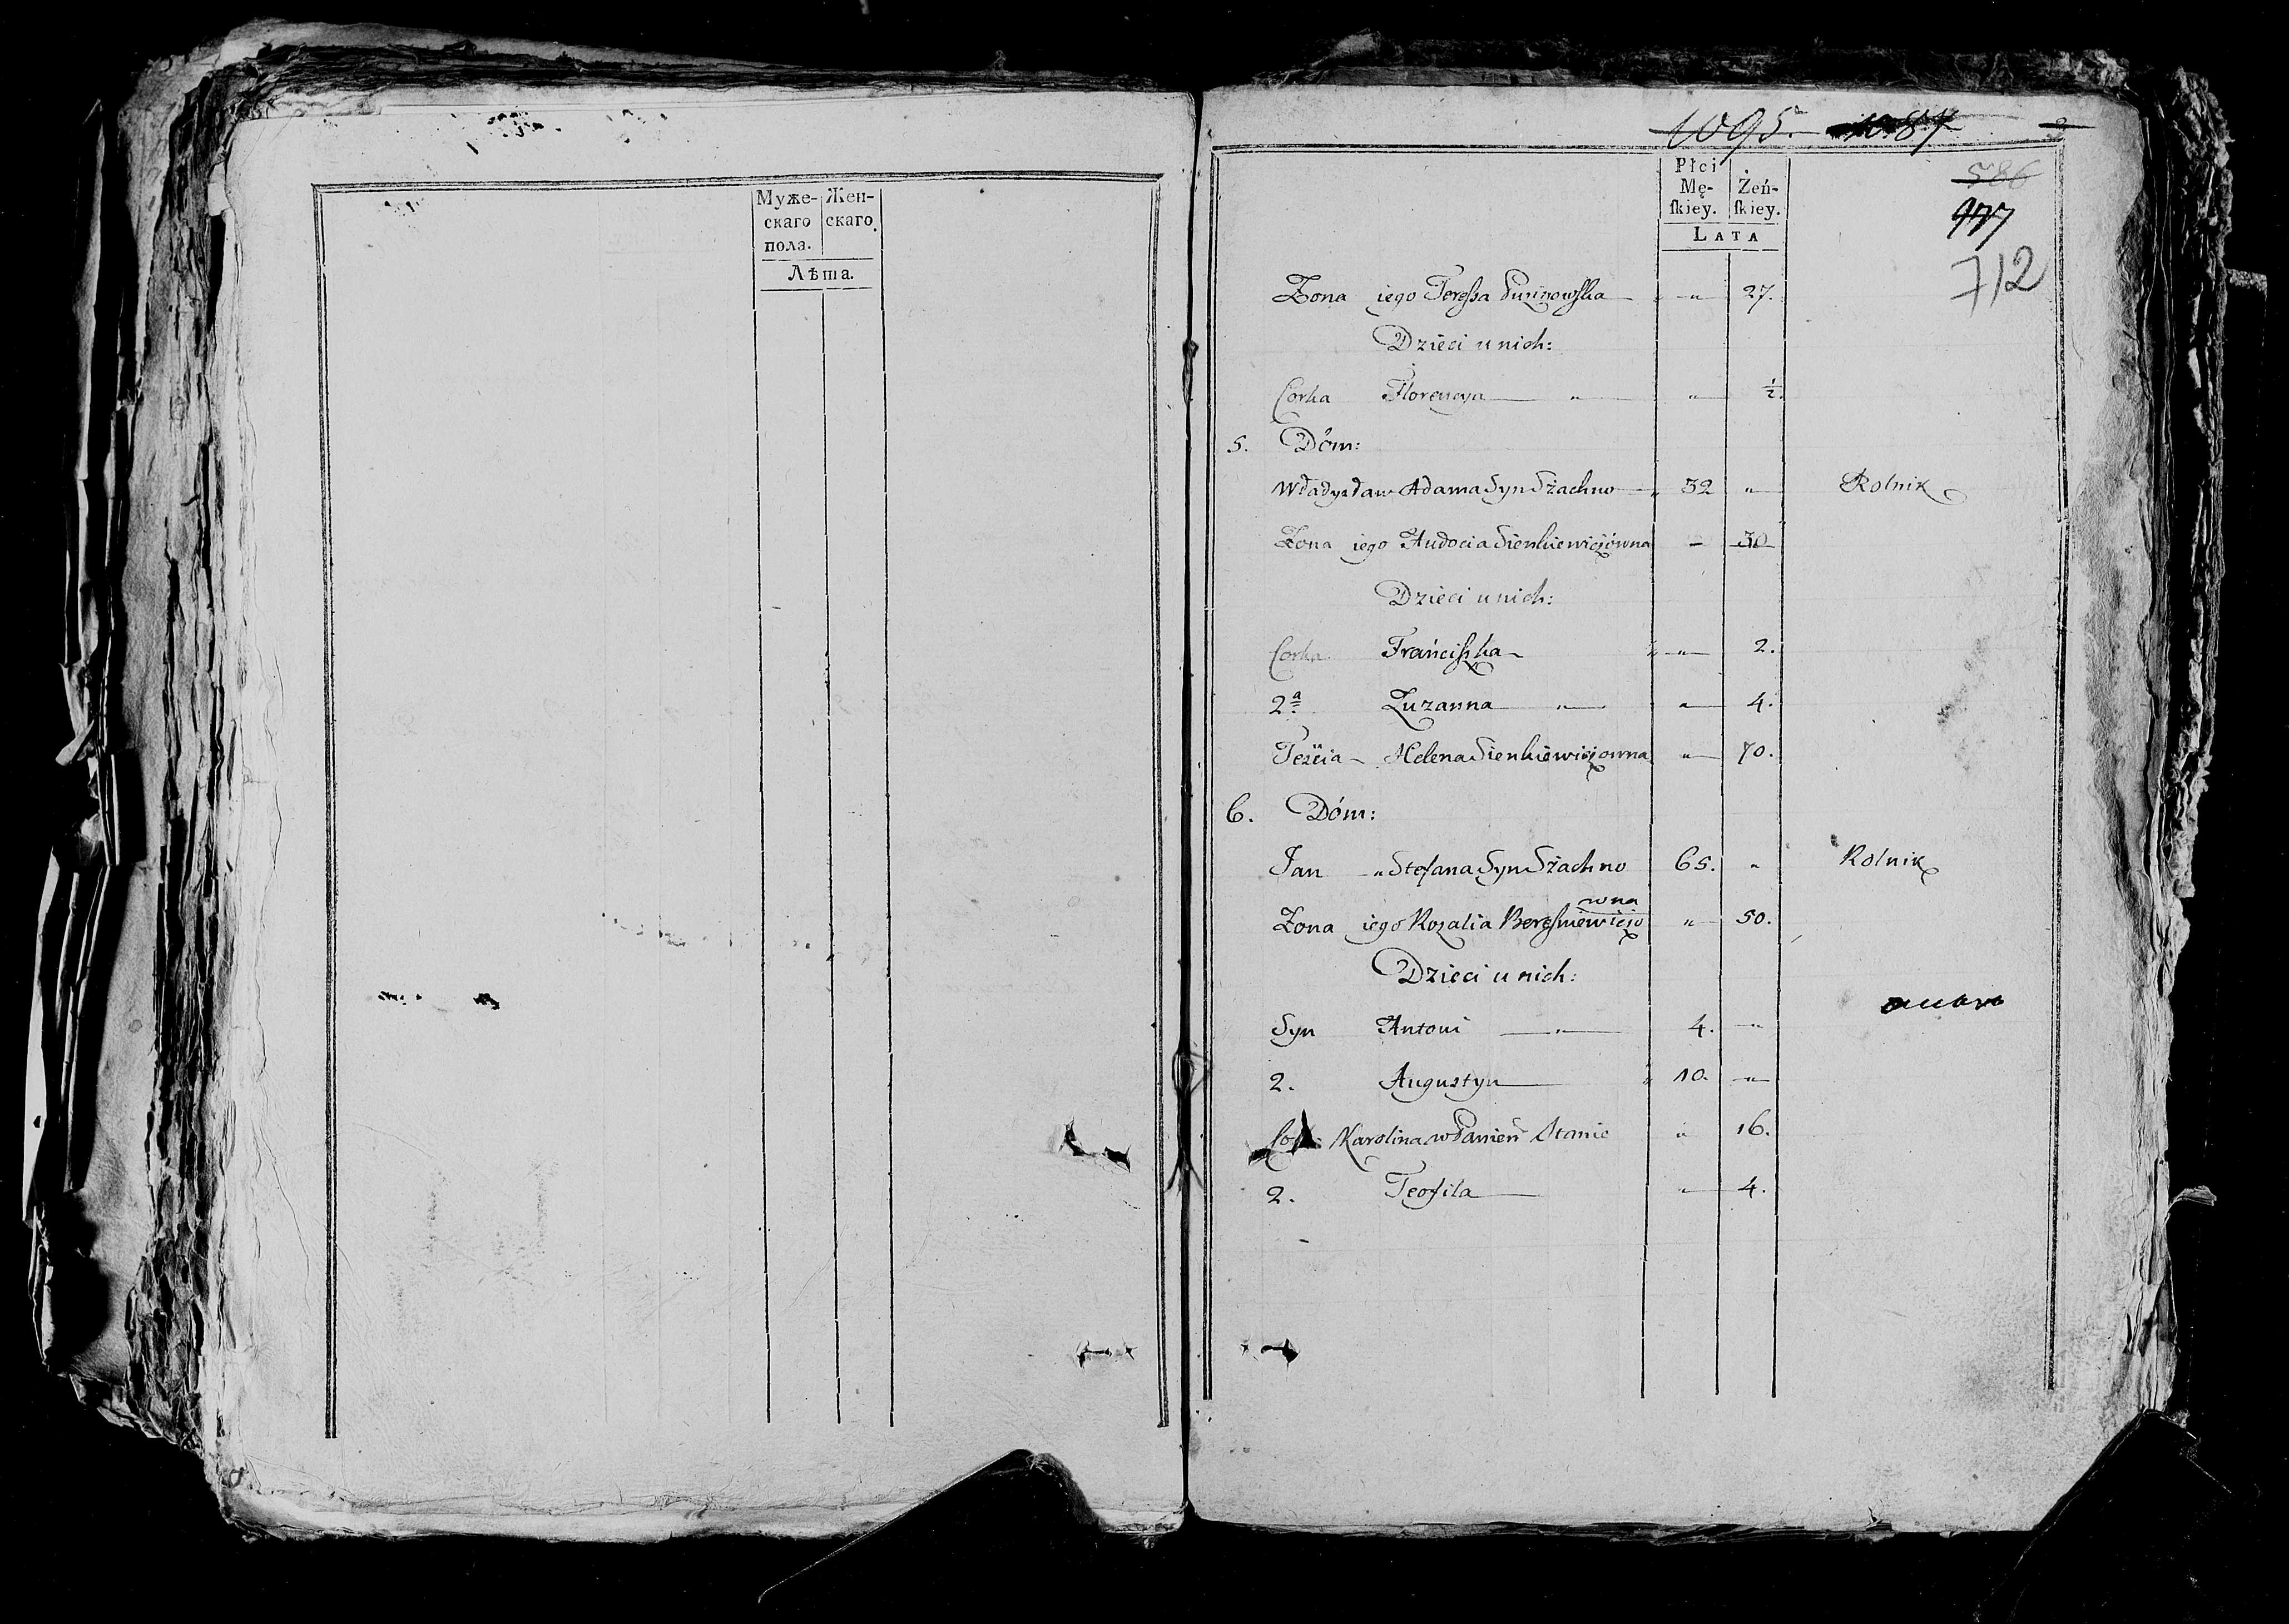 Муже-
скаго
пола.
Жен-
скаго.
Лѣта.
1095. 1084
586
977
712
Płci
Mę-
skiey.
Żeń-
skiey.
LATA
Żona iego Teressa 27.
Dzieci u nich:
Corka Florencya " " ½.
5. Dóm:
Władysław Adama Syn Szachno 32 " Rolnik
Żona iego Audocia Sienkiewiczówna - 30
Dzieci u nich:
Corka Franciszka " 2.
2ª Zuzanna " " 4.
Teścia Helena Sienkiewiczowna " 70.
6. Dóm:
Jan " Stefana Syn Szachno 65. " Rolnik
Żona iego Rozalia Beresniewiczowna " 50.
Dzieci u nich:
Syn Antoni " 4. "
2. Augustyn 10. "
Karolina w Panień Stanie " 16.
2. Teofila " 4.